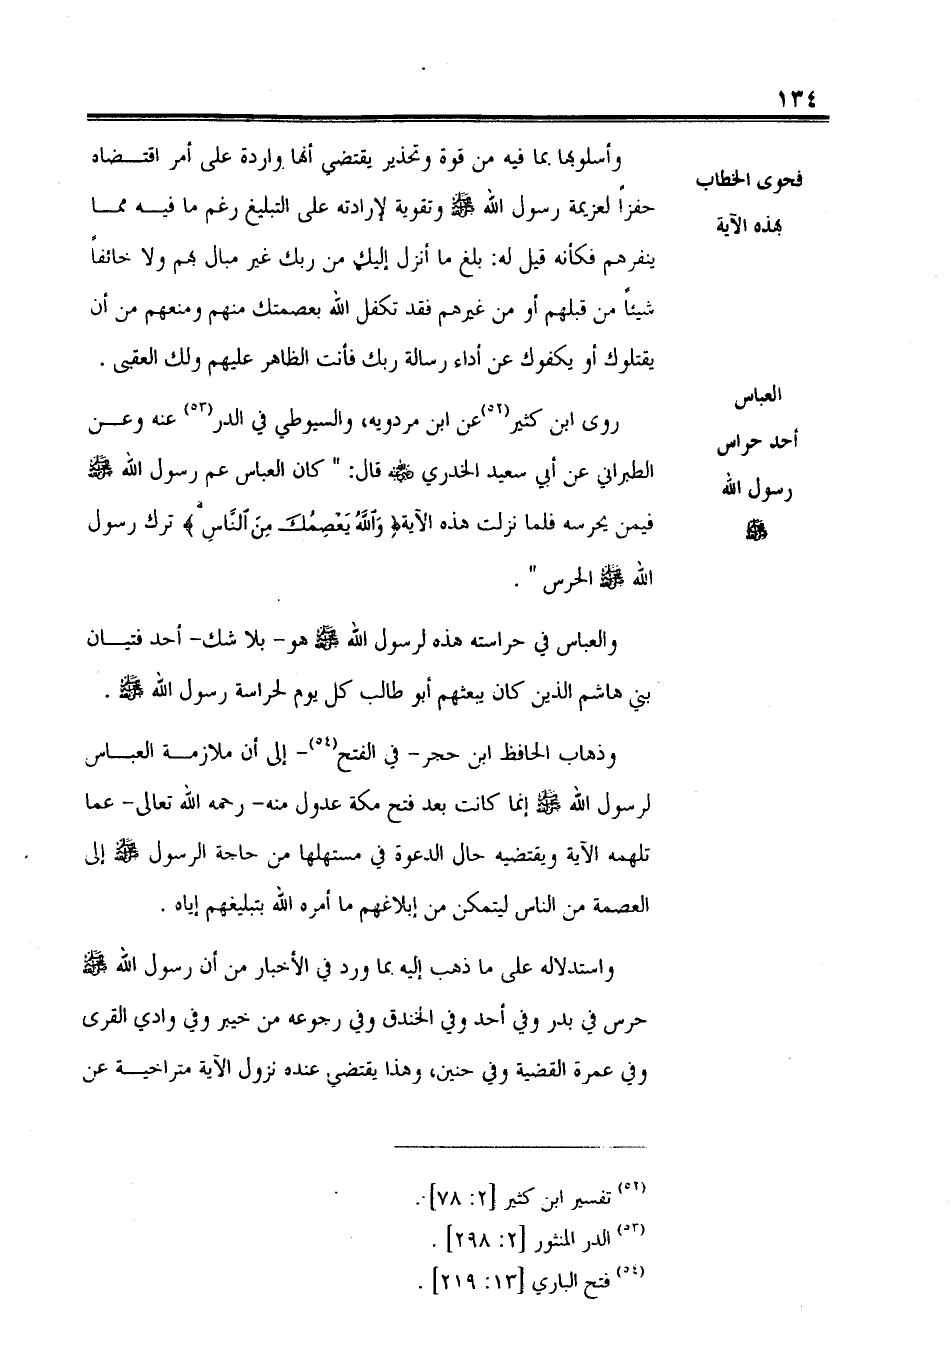 ١٣٤
فحوى الخطاب
بهذه الآية
وأسلوبها بما فيه من قوة وتحذير يقتضي أنها واردة على أمر اقتـــضاه
حفزاً لعزيمة رسول الله ﷺ وتقوية لإرادته على التبليغ رغم ما فيـــه ممـــا
ينفرهم فكأنه قيل له: بلغ ما أنزل إليك من ربك غير مبال بهم ولا خائفاً
شيئاً من قبلهم أو من غيرهم فقد تكفل الله بعصمتك منهم ومنعهم من أن
يقتلوك أو يكفوك عن أداء رسالة ربك فأنت الظاهر عليهم ولك العقبى .
العباس
أحد حراس
رسول الله
ﷺ
روى ابن كثير(٥٢)عن ابن مردويه، والسيوطي في الدر(٥٣) عنه وعـــن
الطبراني عن أبي سعيد الخدري ﵁ قال: " كان العباس عم رسول الله ﷺ
فيمن يحرسه فلما نزلت هذه الآية﴿ وَٱللَّهُ يَعْصِمُكَ مِنَ ٱلنَّاسِ ۚ﴾ ترك رسول
الله ﷺ الحرس " .
والعباس في حراسته هذه لرسول الله ﷺ هو- بلا شك- أحد فتيـــان
بني هاشم الذين كان يبعثهم أبو طالب كل يوم لحراسة رسول الله ﷺ .
وذهاب الحافظ ابن حجر- في الفتح(٥٤)- إلى أن ملازمـــة العبـــاس
لرسول الله ﷺ إنما كانت بعد فتح مكة عدول منه- رحمه الله تعالى- عما
تلهمه الآية ويقتضيه حال الدعوة في مستهلها من حاجة الرسول ﷺ إلى
العصمة من الناس ليتمكن من إبلاغهم ما أمره الله بتبليغهم إياه .
واستدلاله على ما ذهب إليه بما ورد في الأخبار من أن رسول الله ﷺ
حرس في بدر وفي أحد وفي الخندق وفي رجوعه من خيبر وفي وادي القرى
وفي عمرة القضية وفي حنين، وهذا يقتضي عنده نزول الآية متراخيـــة عن
(٥٢) تفسير ابن كثير [٢: ٧٨].
(٥٣) الدر المنثور [٢: ٢٩٨] .
(٥٤) فتح الباري [١٣: ٢١٩] .